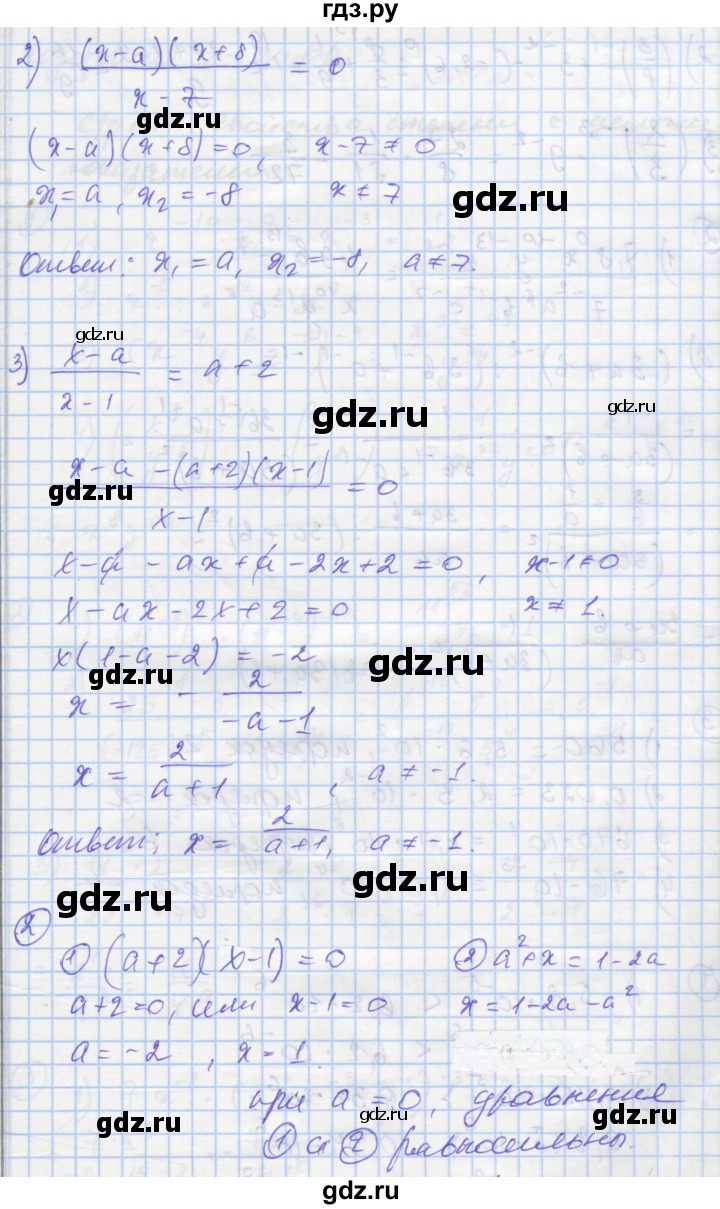 гдз.ру
2) (x-a)(x+8) / x-7 = 0
gdz.ru
(x-a)(x+8)=0, x-7≠0
x₁=a, x₂=-8 x≠7
gdz.ru
Ответ: x₁=a, x₂=-8, a≠7.
gdz.ru
3) x-a / x-1 = a+2
gdz.ru gdz.ru
x-a-(a+2)(x-1) / x-1 = 0
gdz.ru
x-a-ax+a-2x+2=0, x-1≠0
x-ax-2x+2=0 x≠1.
x(1-a-2)=-2
gdz.ru gdz.ru
x = - 2 / -a-1
x = 2 / a+1, a≠-1.
Ответ; x = 2 / a+1, a≠-1.
gdz.ru gdz.ru
2
① (a+2)(x-1)=0 ② a²+x=1-2a
a+2=0, или x-1=0 x=1-2a-a²
a=-2, x=1.
при a=0, уравнения
gdz.ru gdz.ru gdz.ru
① и ② равносильны.
gdz.ru